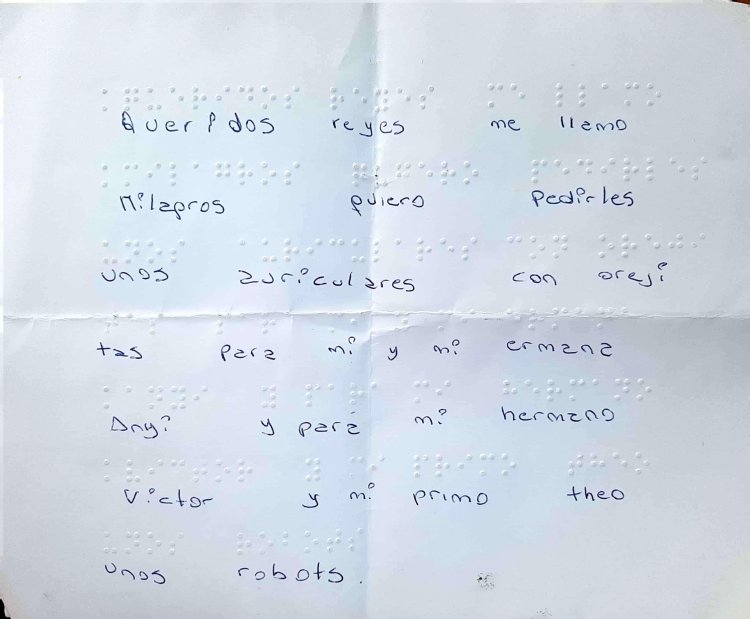 Queridos reyes me llamo
Milagros quiero Pedirles
unos auriculares con oreji
tas para mi y mi ermana
Any? y para mi hermano
Victor y mi primo theo
unos robots.